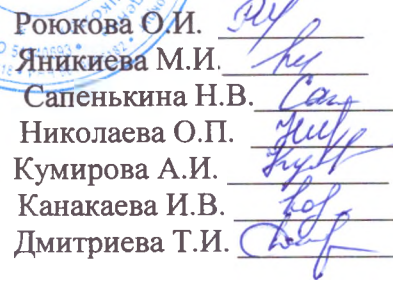 Роюкова О.И.
Яникиева М.И.
Сапенькина Н.В.
Николаева О.П.
Кумирова А.И.
Канакаева И.В.
Дмитриева Т.И.